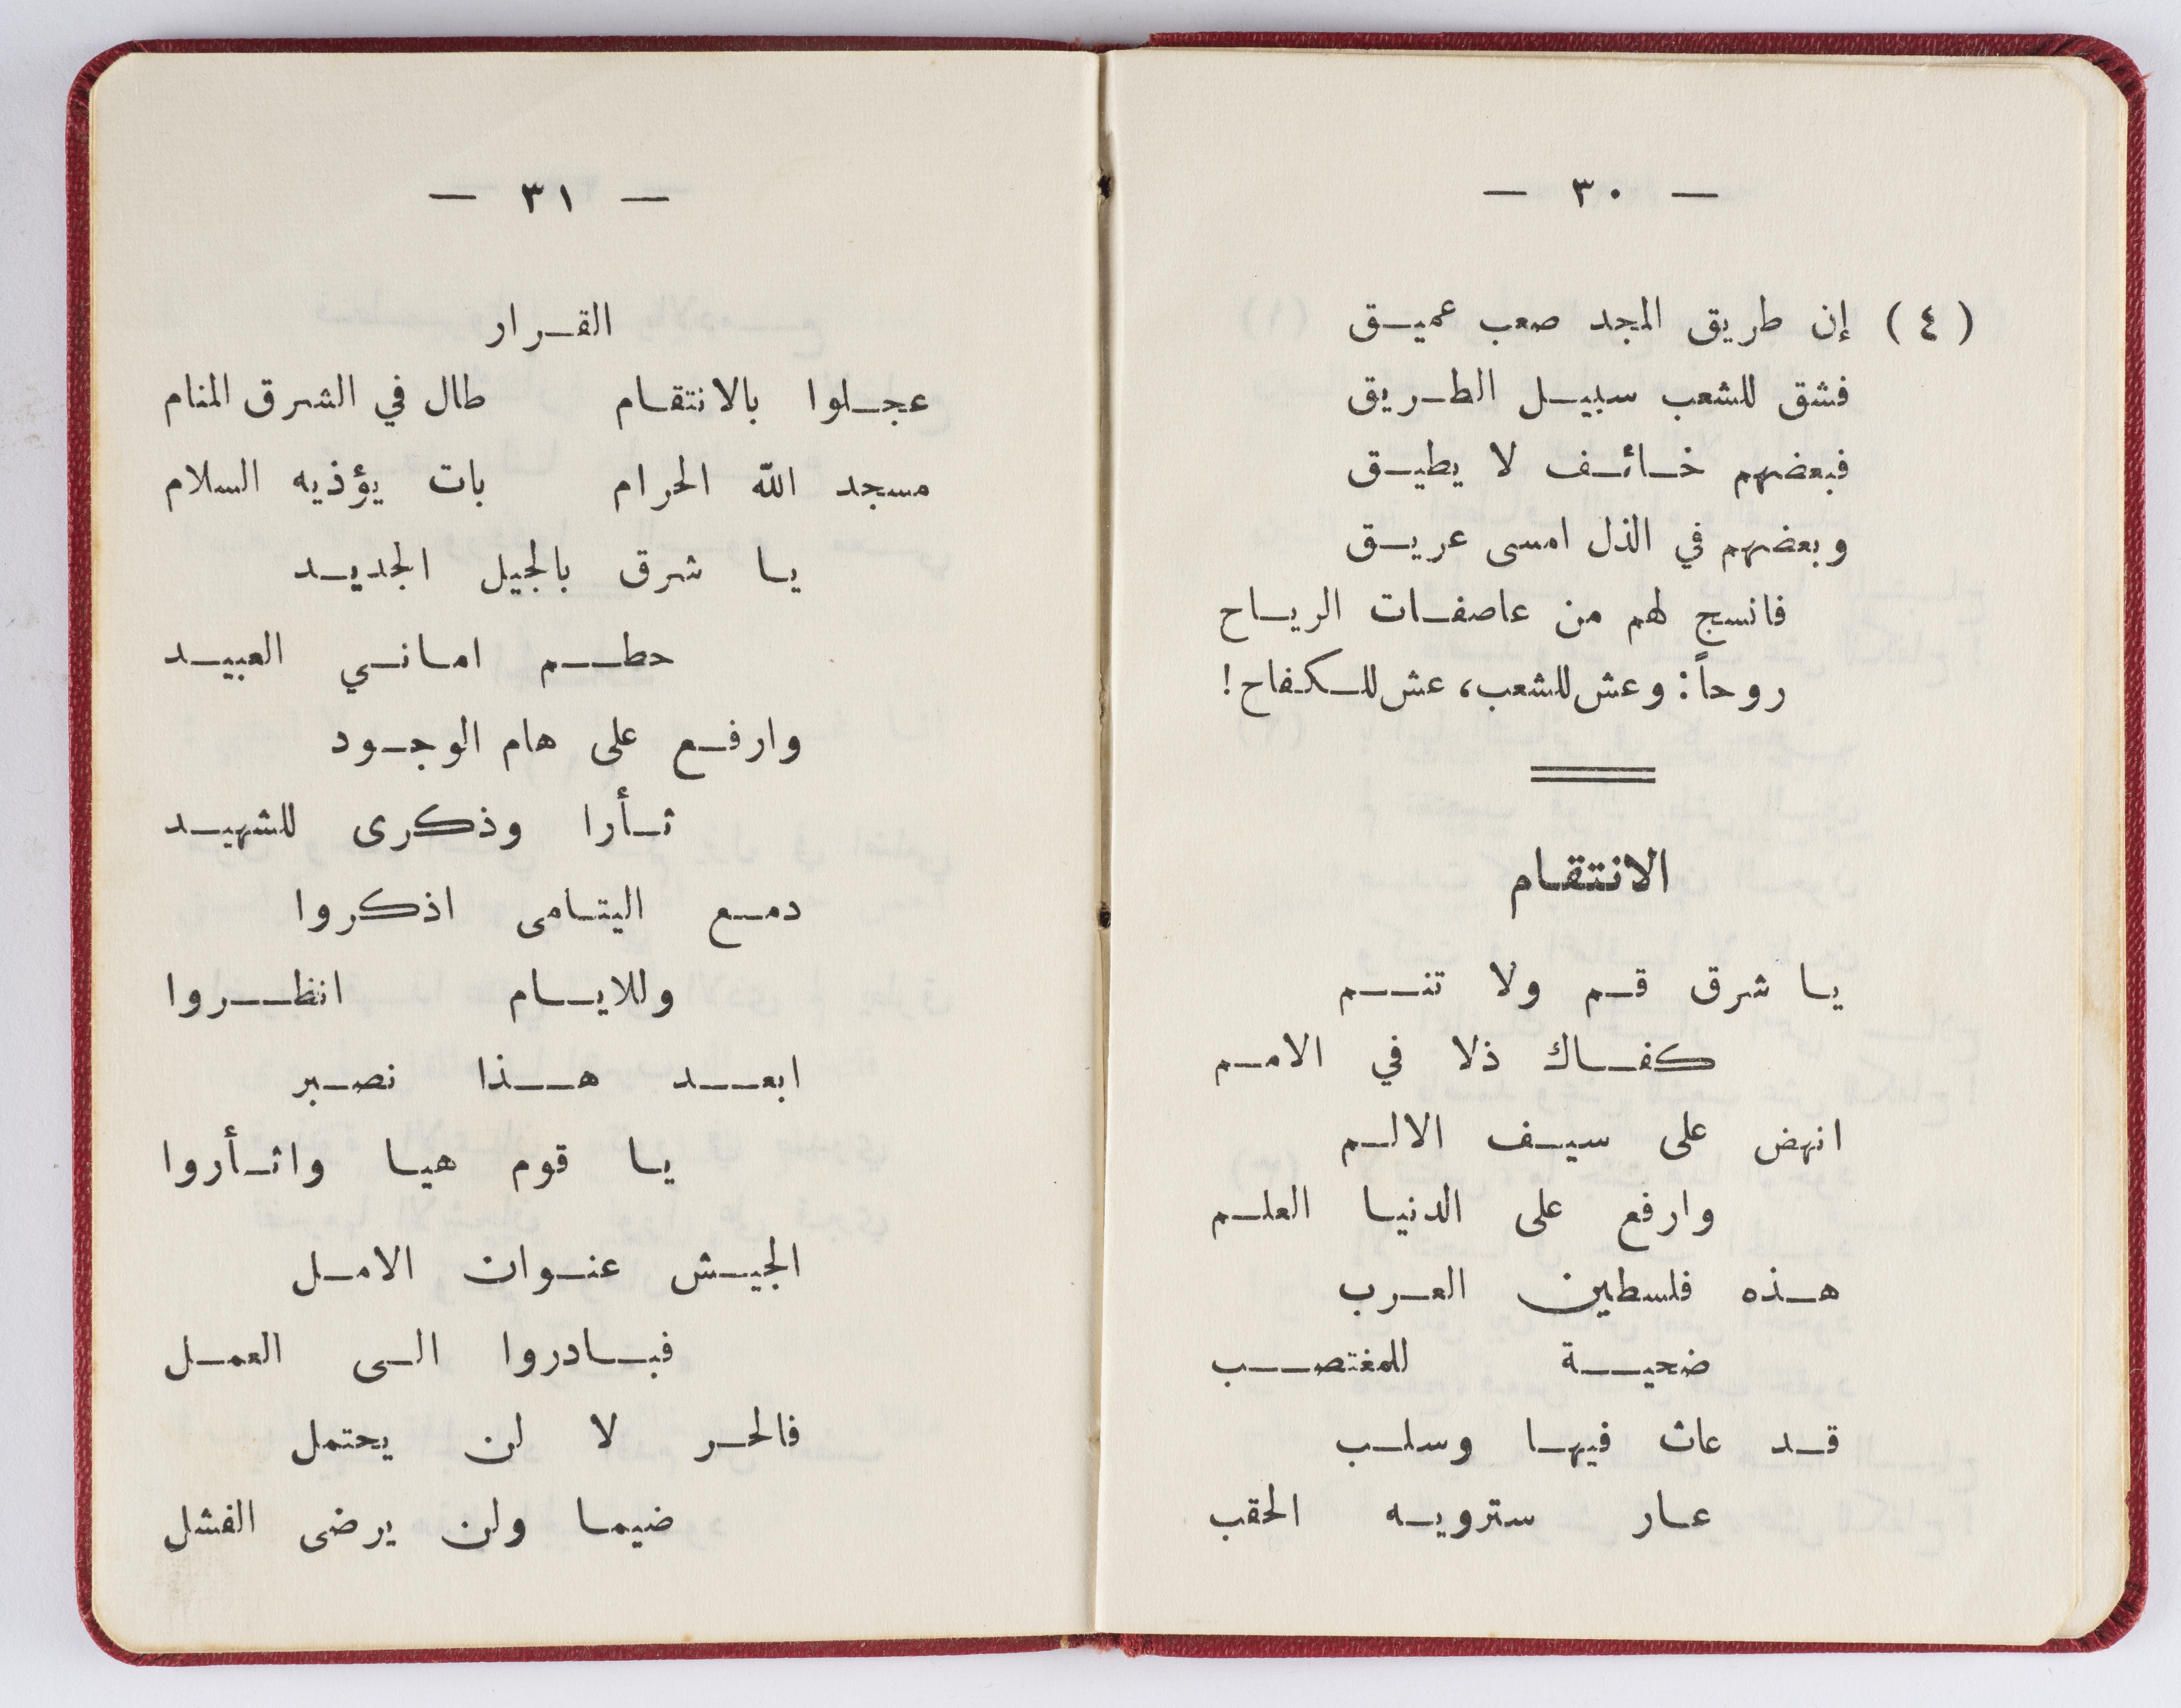 — ٣٠ —
( ٤ ) إن طريق المجد صعب عميق
فشق للشعب سبيل الطريق
فبعضهم خائف لا يطيق
وبعضهم في الذل امسى عريق
فانسج لهم من عاصفات الرياح
روحاً: وعش للشعب، عش للكفاح!
الانتقام
يا شرق قم ولا تنم
كفاك ذلا في الامم
انهض على سيف الالم
وارفع على الدنيا العلم
هذه فلسطين العرب
ضحية للمغتصب
قد عاث فيها وسلب
عار سترويه الحقب
— ٣١ —
القرار
عجلوا بالانتقام طال في الشرق المنام
مسجد الله الحرام بات يؤذيه السلام
يا شرق بالجيل الجديد
حطم اماني العبيد
وارفع على هام الوجود
ثأرا وذكرى للشهيد
دمع اليتامى اذكروا
وللايام انظروا
ابعد هذا نصبر
يا قوم هيا واثأروا
الجيش عنوان الامل
فبادروا الى العمل
فالحر لا لن يحتمل
ضيما ولن يرضى الفشل